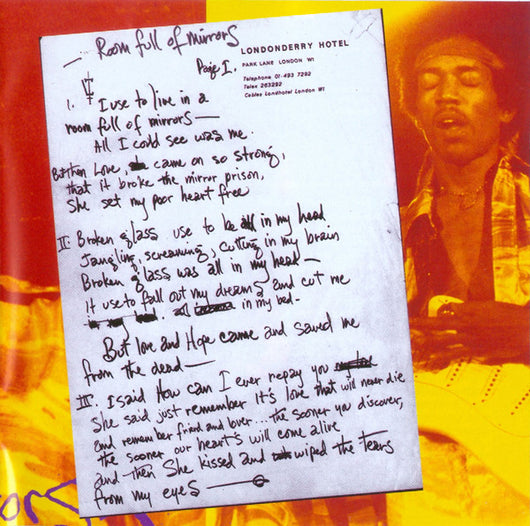 Room full of mirrors
Page I.
LONDONDERRY HOTEL
PARK LANE LONDON W1
Telephone 01-493 7292
Telex 263292
Cables Londhotel London W1
I. I use to live in a
room full of mirrors —
All I could see was me.
But then Love, came on so strong,
that it broke the mirror prison,
She set my poor heart free
II: Broken glass use to be all in my head
Jangling, screaming, cutting in my brain
Broken glass was all in my head —
it use to fall out my dreams and cut me
in my bed -
But love and Hope came and saved me
from the dead —
III. I said How can I ever repay you
She said just remember it's love that will never die
and remember friend and lover... the sooner you discover,
the sooner our heart's will come alive
and then She kissed and wiped the tears
from my eyes —